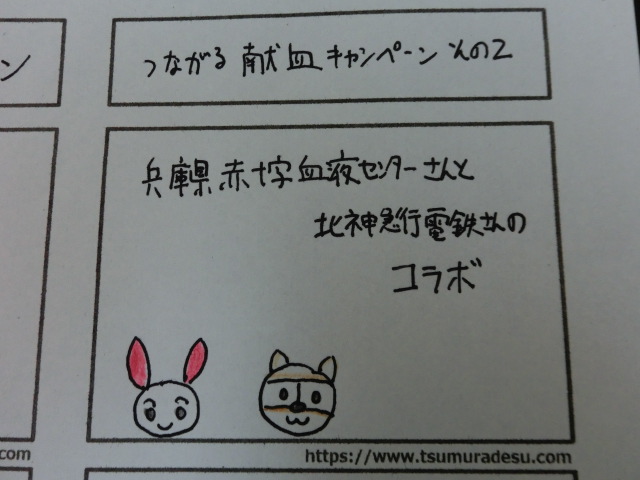 ン
つながる 献血 キャンペーン その2
兵庫県赤十字血液センターさんと
北神急行電鉄さんの
コラボ
.com
https://www.tsumuradesu.com